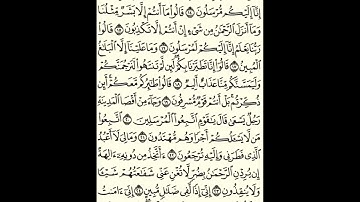 إِنَّآ إِلَيْكُم مُّرْسَلُونَ ١٤ قَالُوا۟ مَآ أَنتُمْ إِلَّا بَشَرٌ مِّثْلُنَا
وَمَآ أَنزَلَ ٱلرَّحْمَـٰنُ مِن شَىْءٍ إِنْ أَنتُمْ إِلَّا تَكْذِبُونَ ١٥ قَالُوا۟
رَبُّنَا يَعْلَمُ إِنَّآ إِلَيْكُمْ لَمُرْسَلُونَ ١٦ وَمَا عَلَيْنَآ إِلَّا ٱلْبَلَـٰغُ
ٱلْمُبِينُ ١٧ قَالُوٓا۟ إِنَّا تَطَيَّرْنَا بِكُمْ لَئِن لَّمْ تَنتَهُوا۟ لَنَرْجُمَنَّكُمْ
وَلَيَمَسَّنَّكُم مِّنَّا عَذَابٌ أَلِيمٌ ١٨ قَالُوا۟ طَـٰٓئِرُكُم مَّعَكُمْ أَئِن
ذُكِّرْتُم بَلْ أَنتُمْ قَوْمٌ مُّسْرِفُونَ ١٩ وَجَآءَ مِنْ أَقْصَا ٱلْمَدِينَةِ
رَجُلٌ يَسْعَىٰ قَالَ يَـٰقَوْمِ ٱتَّبِعُوا۟ ٱلْمُرْسَلِينَ ٢٠ ٱتَّبِعُوا۟
مَن لَّا يَسْـَٔلُكُمْ أَجْرًا وَهُم مُّهْتَدُونَ ٢١ وَمَا لِىَ لَآ أَعْبُدُ
ٱلَّذِى فَطَرَنِى وَإِلَيْهِ تُرْجَعُونَ ٢٢ ءَأَتَّخِذُ مِن دُونِهِۦٓ ءَالِهَةً
إِن يُرِدْنِ ٱلرَّحْمَـٰنُ بِضُرٍّ لَّا تُغْنِ عَنِّى شَفَـٰعَتُهُمْ شَيْـًٔا
وَلَا يُنقِذُونِ ٢٣ إِنِّىٓ إِذًا لَّفِى ضَلَـٰلٍ مُّبِينٍ ٢٤ إِنِّىٓ ءَامَنتُ